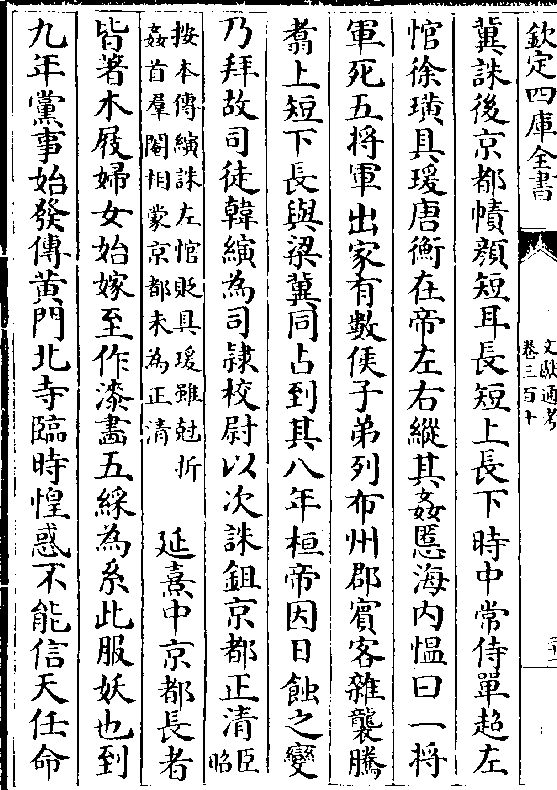 欽定四庫全書
文獻通考
卷三百十
冀誅後京都幘顔短耳長短上長下時中常侍單超左
悺徐璜具瑗唐衡在帝左右縱其姦慝海内愠曰一將
軍死五將軍出家有數侯子弟列布州郡賓客雜襲騰
翥上短下長與梁冀同占到其八年桓帝因日蝕之變
乃拜故司徒韓縯為司隷校尉以次誅鉏京都正清臣昭
按本傳縯誅左悺貶具瑗雖尅折
姦首羣閹相蒙京都未為正清
延熹中京都長者
皆著木屐婦女始嫁至作漆畵五綵為系此服妖也到
九年黨事始發傳黄門北寺臨時惶惑不能信天任命